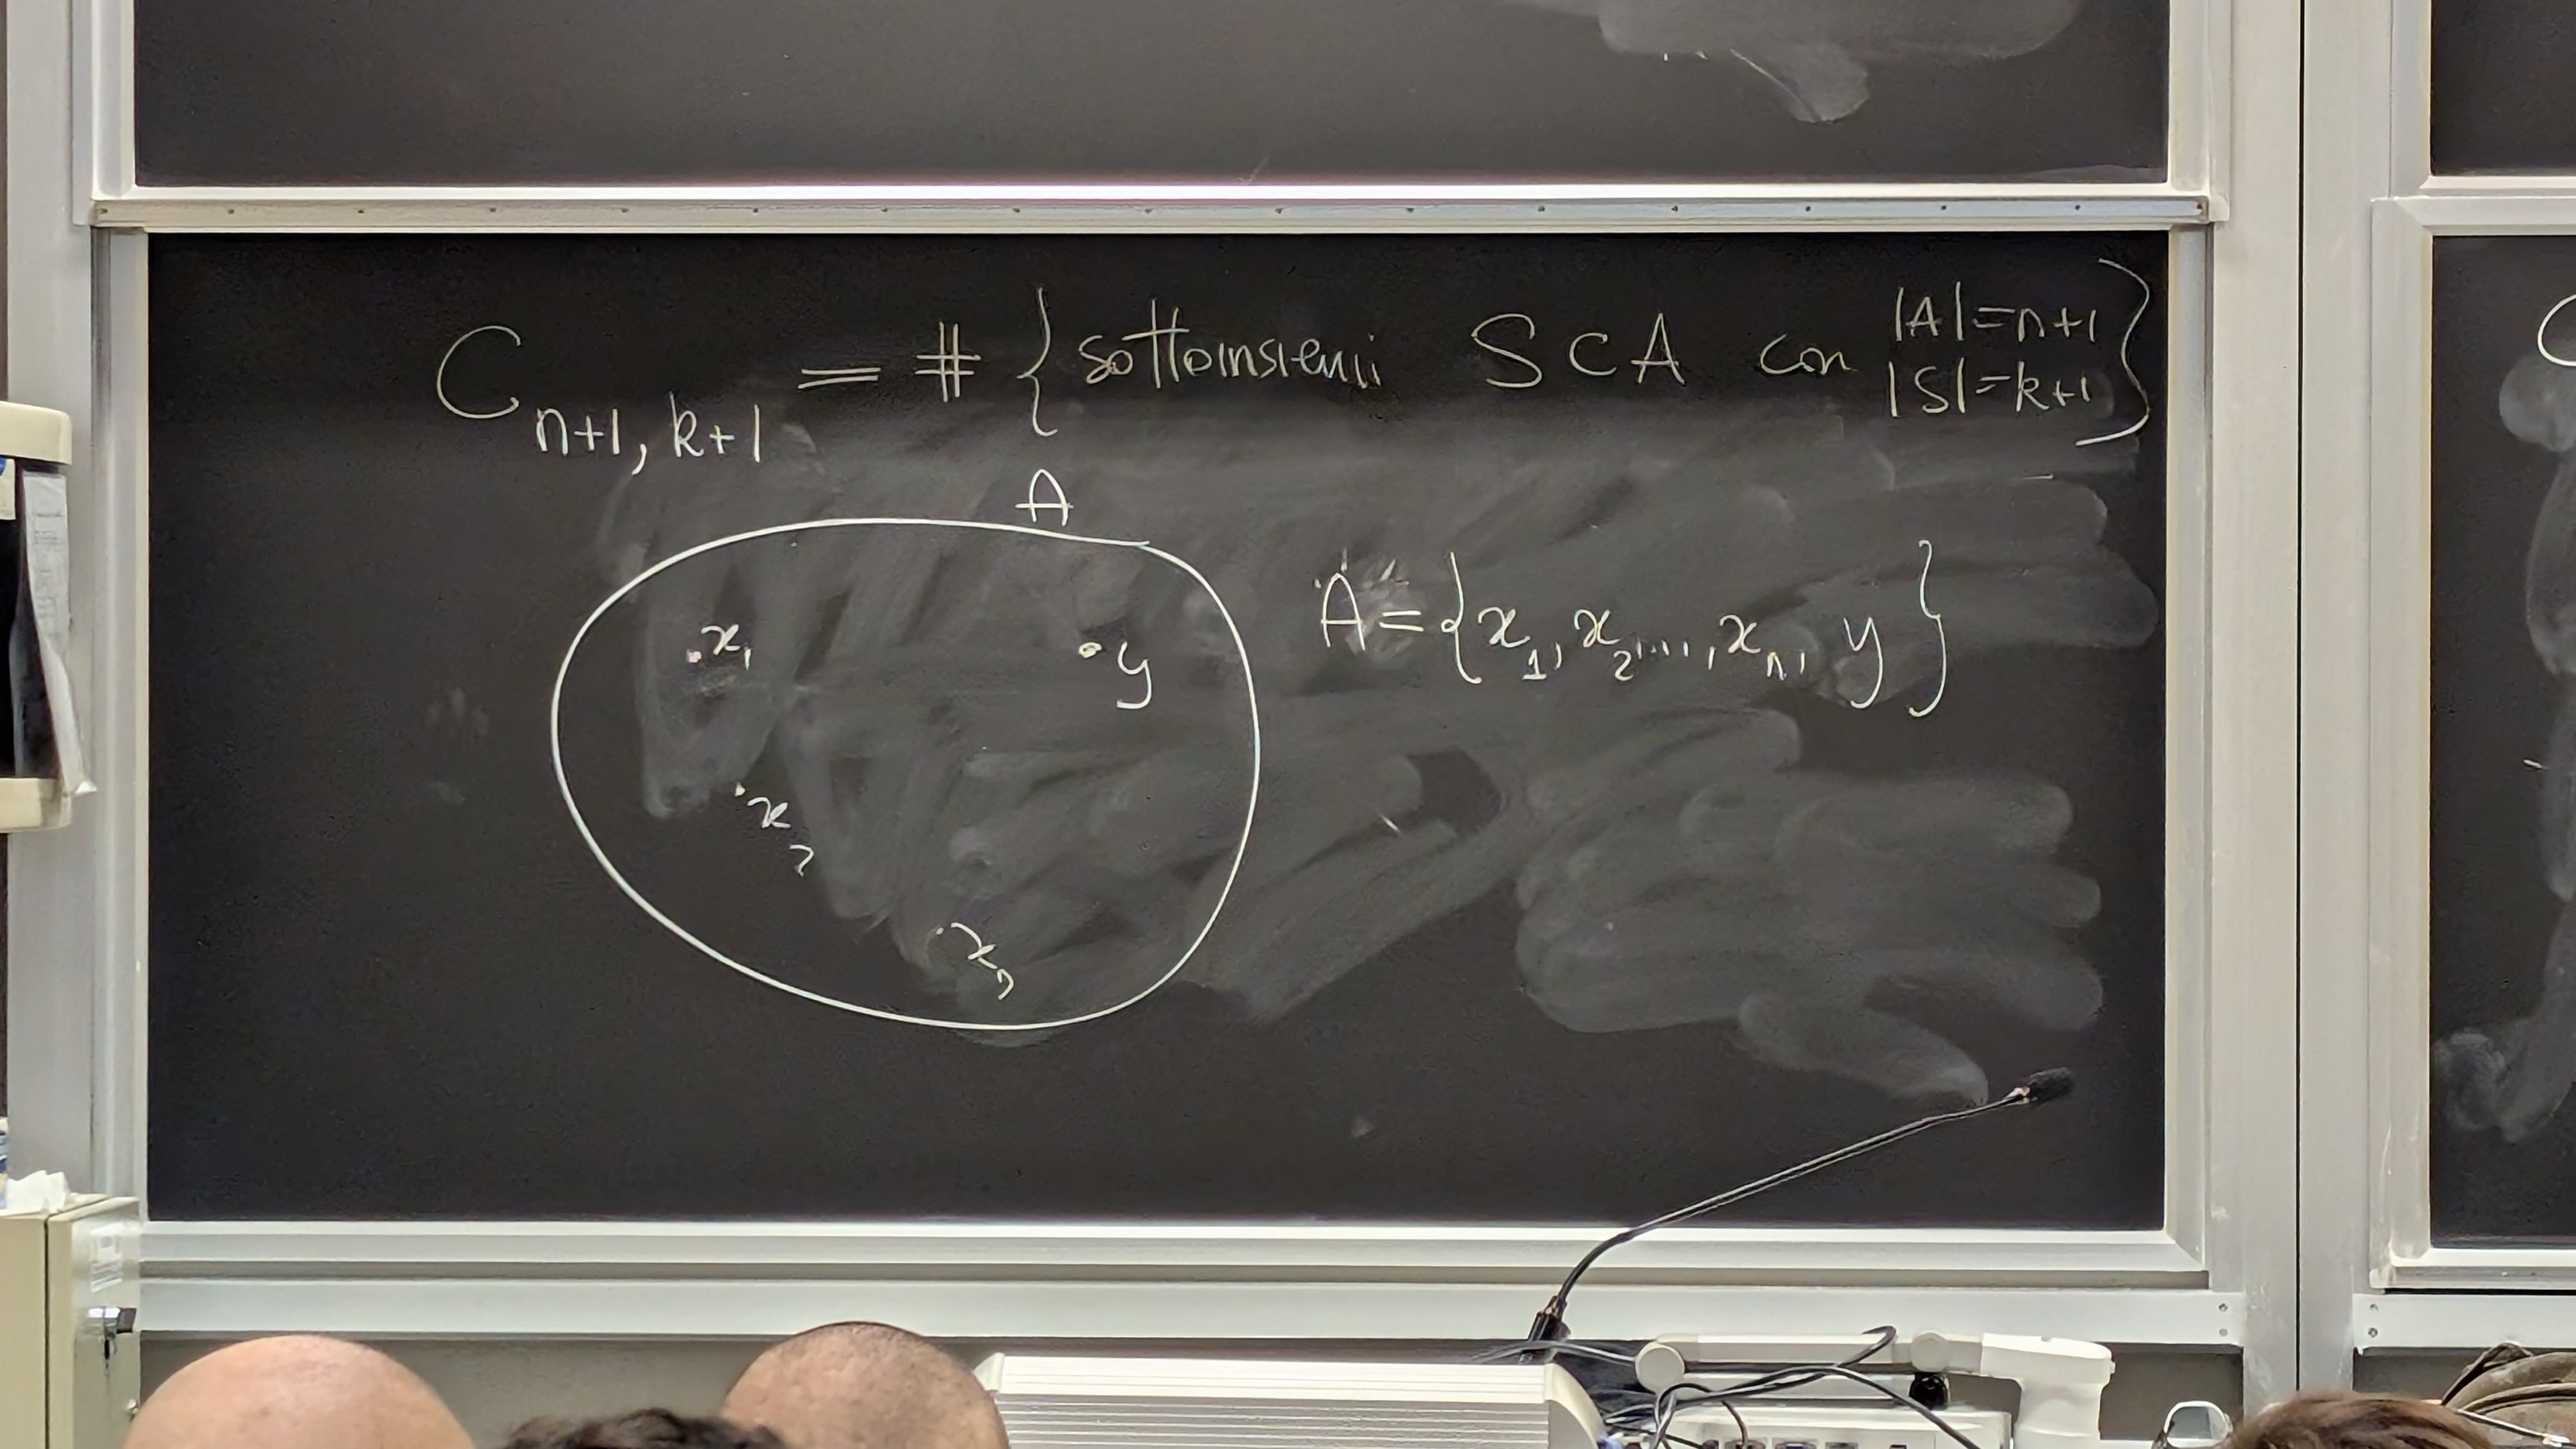 C n+1, k+1 = # { sottoinsiemi S ⊂ A con |A|=n+1 |S|=k+1 }
A
A = { x1, x2, ..., xn, y }
x1
y
x2
xn